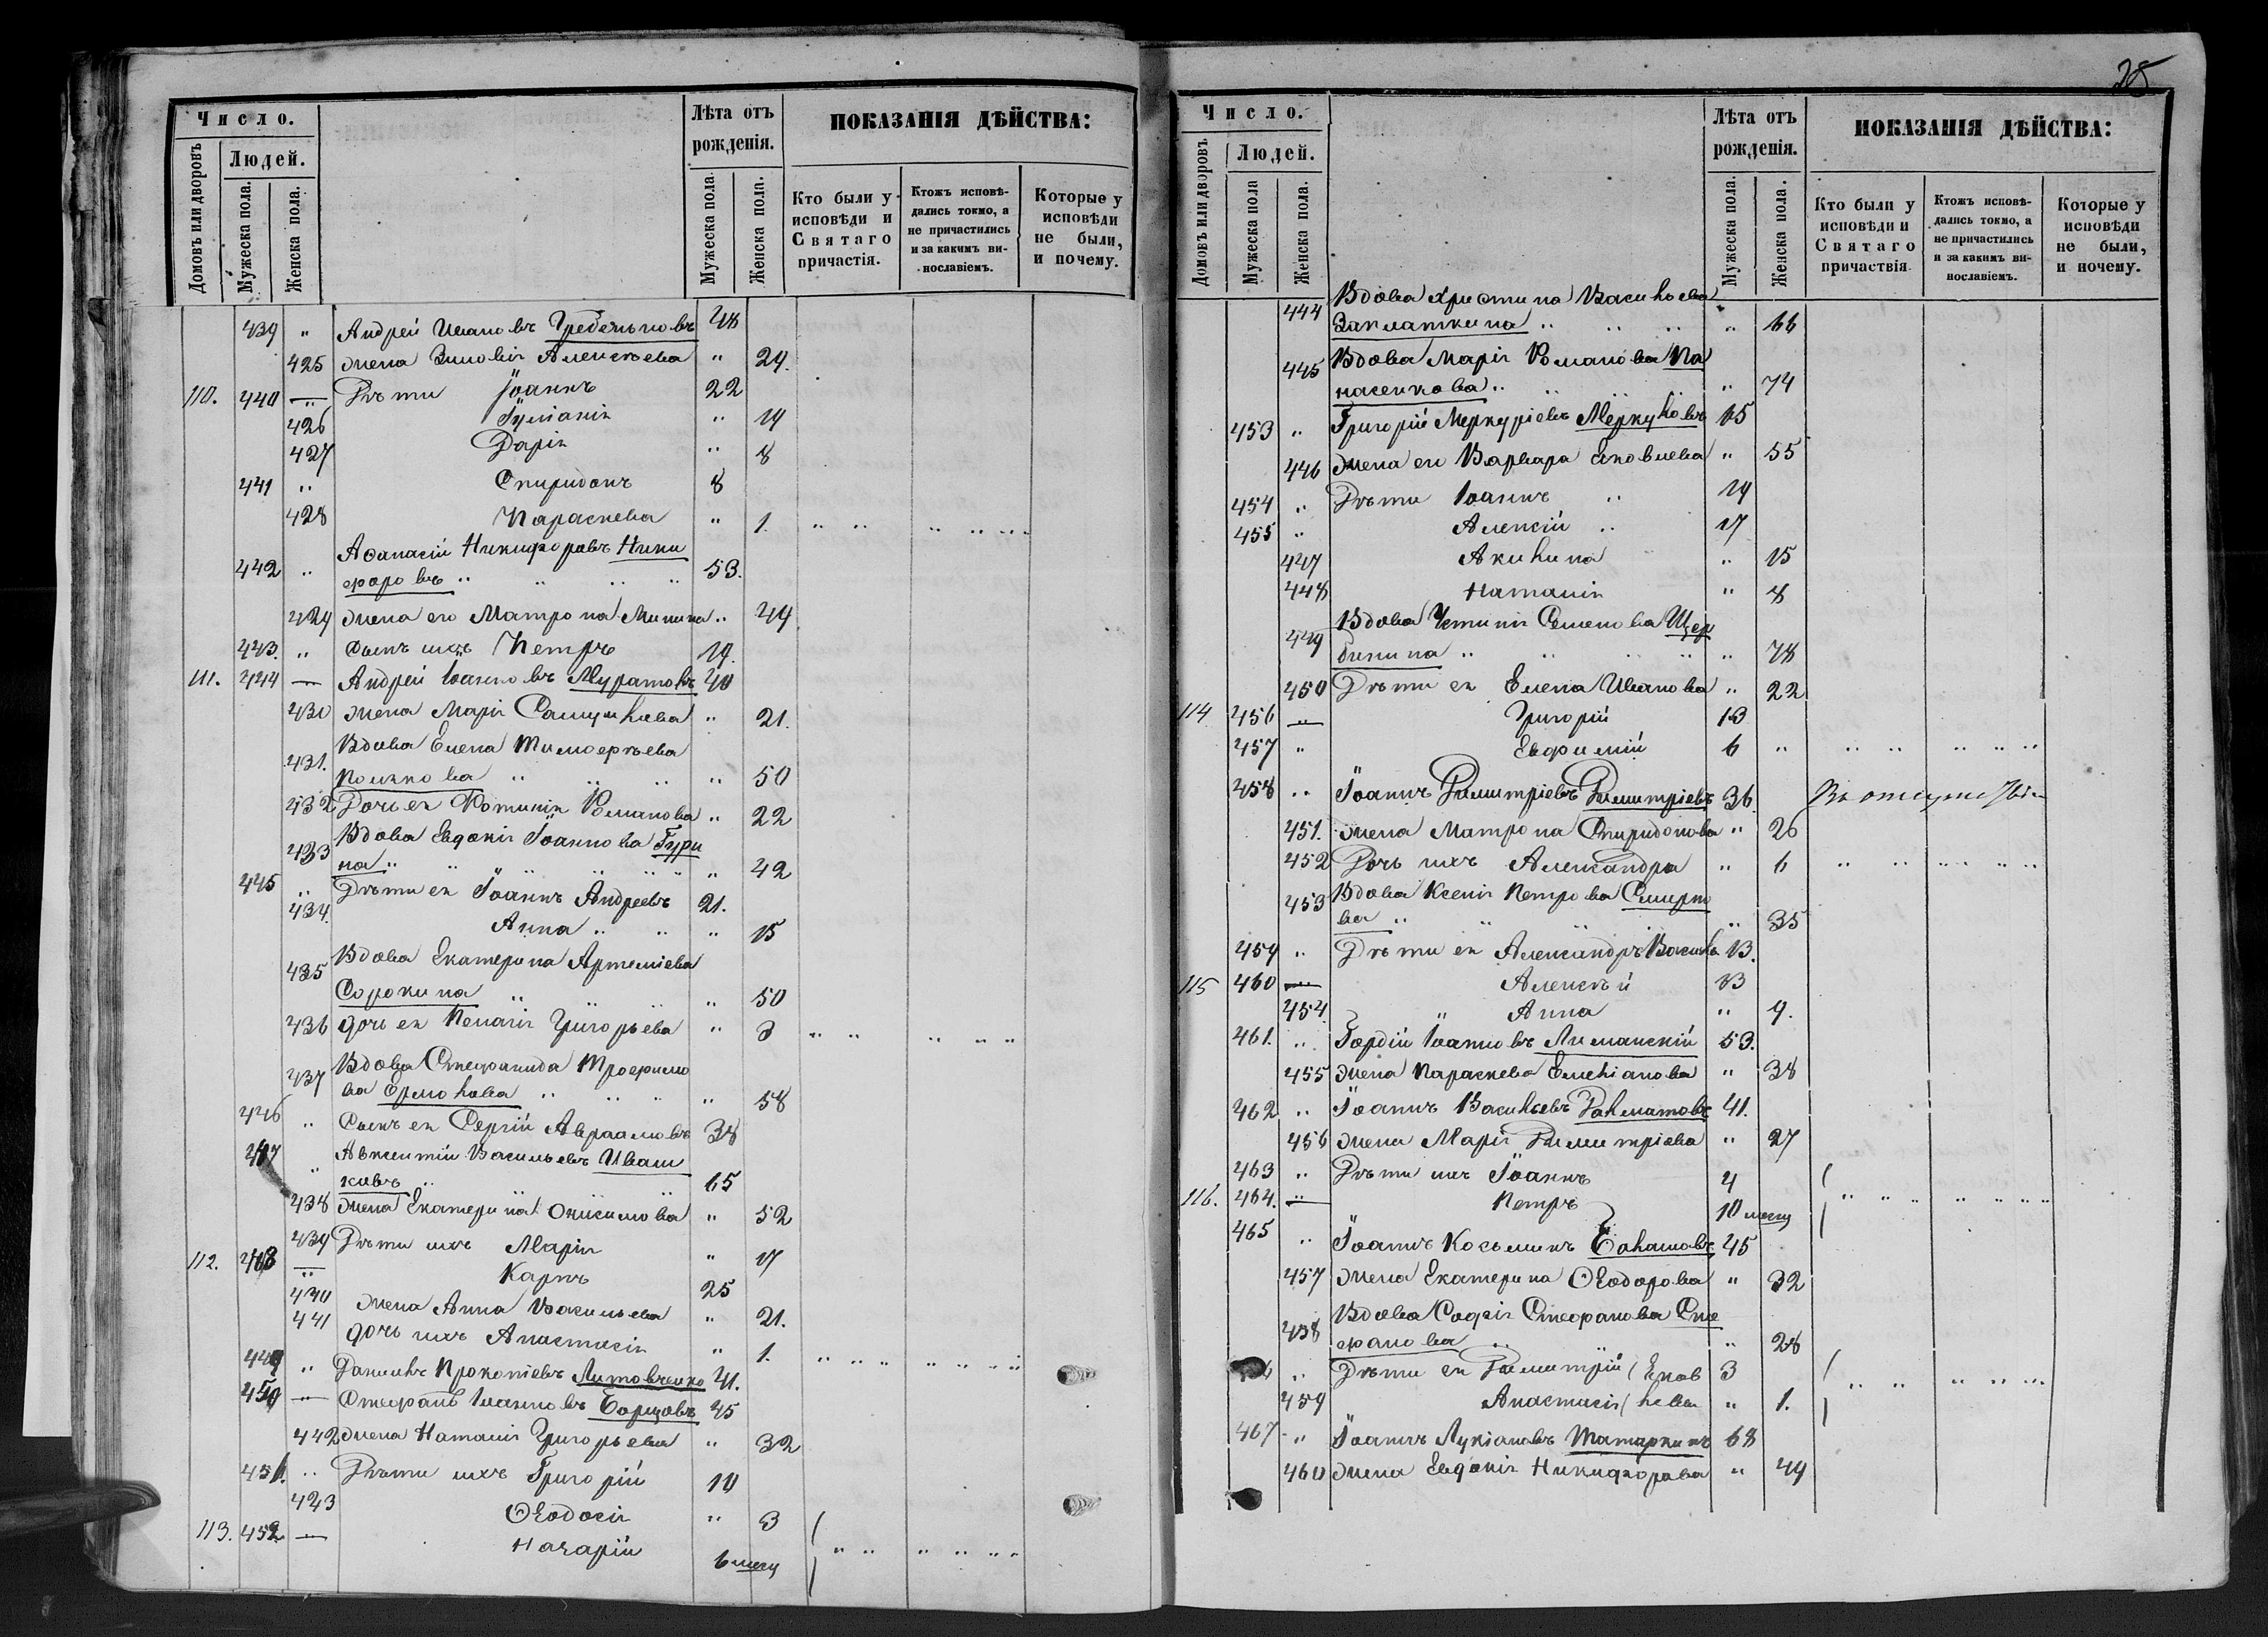 Число.
Людей.
Домовъ или дворовъ
Мужеска пола.
Женска пола.
Лѣта отъ рожденія.
Мужеска пола.
Женска пола.
ПОКАЗАНІЯ ДѢЙСТВА:
Кто были у исповѣди и Святаго причастія.
Ктожъ исповѣдались токмо, а не причастились и за какимъ винославіемъ.
Которые у исповѣди не были, и почему.
439 " Андрей Ивановъ Гребеньковъ 48
425 жена Зиновія Алексѣева " 29.
110. 440 — Дѣти Іоаннъ 22
426 Іуліанія " 19
427 Дарія " 8
441 " Спиридонъ 8
428 Параскева " 1.
Аѳанасій Никифоровъ Ники
442 " форовъ 53.
429 жена его Матрона Минина " 49
443. " сынъ ихъ Петръ 19.
111. 444 — Андрей Іоанновъ Муратовъ 40
430 жена Марія Самуилова " 21.
Вдова Елена Тимоѳеева
431. " 50
432 Дочь ея Фотинія Романова " 22
Вдова Евдокія Іоаннова Гури
433 на " 42
445 " Дѣти ея Іоаннъ Андреевъ 21.
434. Анна " 15
Вдова Екатерина Артеміева
435 Сорокина " 50
436 дочь ея Пелагія Григорьева " 3
Вдова Стефанида Трофимо
437 ва Ермолова " 58
446 " Сынъ ея Сергій Авраамовъ 38
447 Авксентій Васильевъ Иваш
" ковъ 65
438 жена Екатерина Онисимова " 52
439 Дѣти ихъ Марія " 17
112. 448 — Карпъ 25
440 жена Анна Васильева " 21.
441 дочь ихъ Анастасія " 1.
449 " Даніилъ Прокопіевъ Литовченко 41.
450 — Стефанъ Іоанновъ Борцовъ 45
442 жена Наталія Григорьева " 32
451. " Дѣти ихъ Григорій 10
423 Ѳеодосія " 3
113. 452 — Назарій 6 месц
28
Число.
Людей.
Домовъ или дворовъ
Мужеска пола
Женска пола.
Лѣта отъ рожденія.
Мужеска пола.
Женска пола.
ПОКАЗАНІЯ ДѢЙСТВА:
Кто были у исповѣди и Святаго причаствія
Ктожъ исповѣдались токмо, а не причастились и за какимъ винославіемъ.
Которые у исповѣди не были, и почему.
Вдова Христина Васильева
444 Заплаткина " 66
Вдова Марія Романова Па
445 насенкова " 74
453 " Григорій Меркуріевъ Меркуловъ 65
446 жена его Варвара Яковлева " 55
454 " Дѣти Іоаннъ 19
455 " Алексій 17
447 Акилина " 15
448 Наталія " 8
Вдова Устинія Семенова Щер
449 бинина " 48
450 Дѣти ея Елена Иванова " 22
114 456 — Григорій 13
457 " Евфимій 6
458 " Іоаннъ Димитріевъ Димитріевъ 36.
451. жена Матрона Спиридонова " 26
452 Дочь ихъ Александра " 6
Вдова Ксенія Петрова Смирно
453 ва " 35
459 " Дѣти ея Александръ Василь 13.
115 460 — Алексѣй 13
454. Анна " 9.
461. " Гордій Іоанновъ Лиманскій 53.
455 жена Параскева Емеліанова " 38
462 " Іоаннъ Васильевъ Далматовъ 41.
456 жена Марія Димитріева " 27
463 " Дѣти ихъ Іоаннъ 4
116. 464. — Петръ 10 месц
465 " Іоаннъ Косьминъ Балашовъ 45
457 жена Екатерина Ѳеодорова " 32
Вдова Софія Стефанова Сте
458 фанова " 28
" Дѣти ея Димитрій (Яков 3
459 Анастасія (лева " 1.
467 " Іоаннъ Лукіановъ Татаркинъ 68
460 жена Евдокія Никифорова " 49